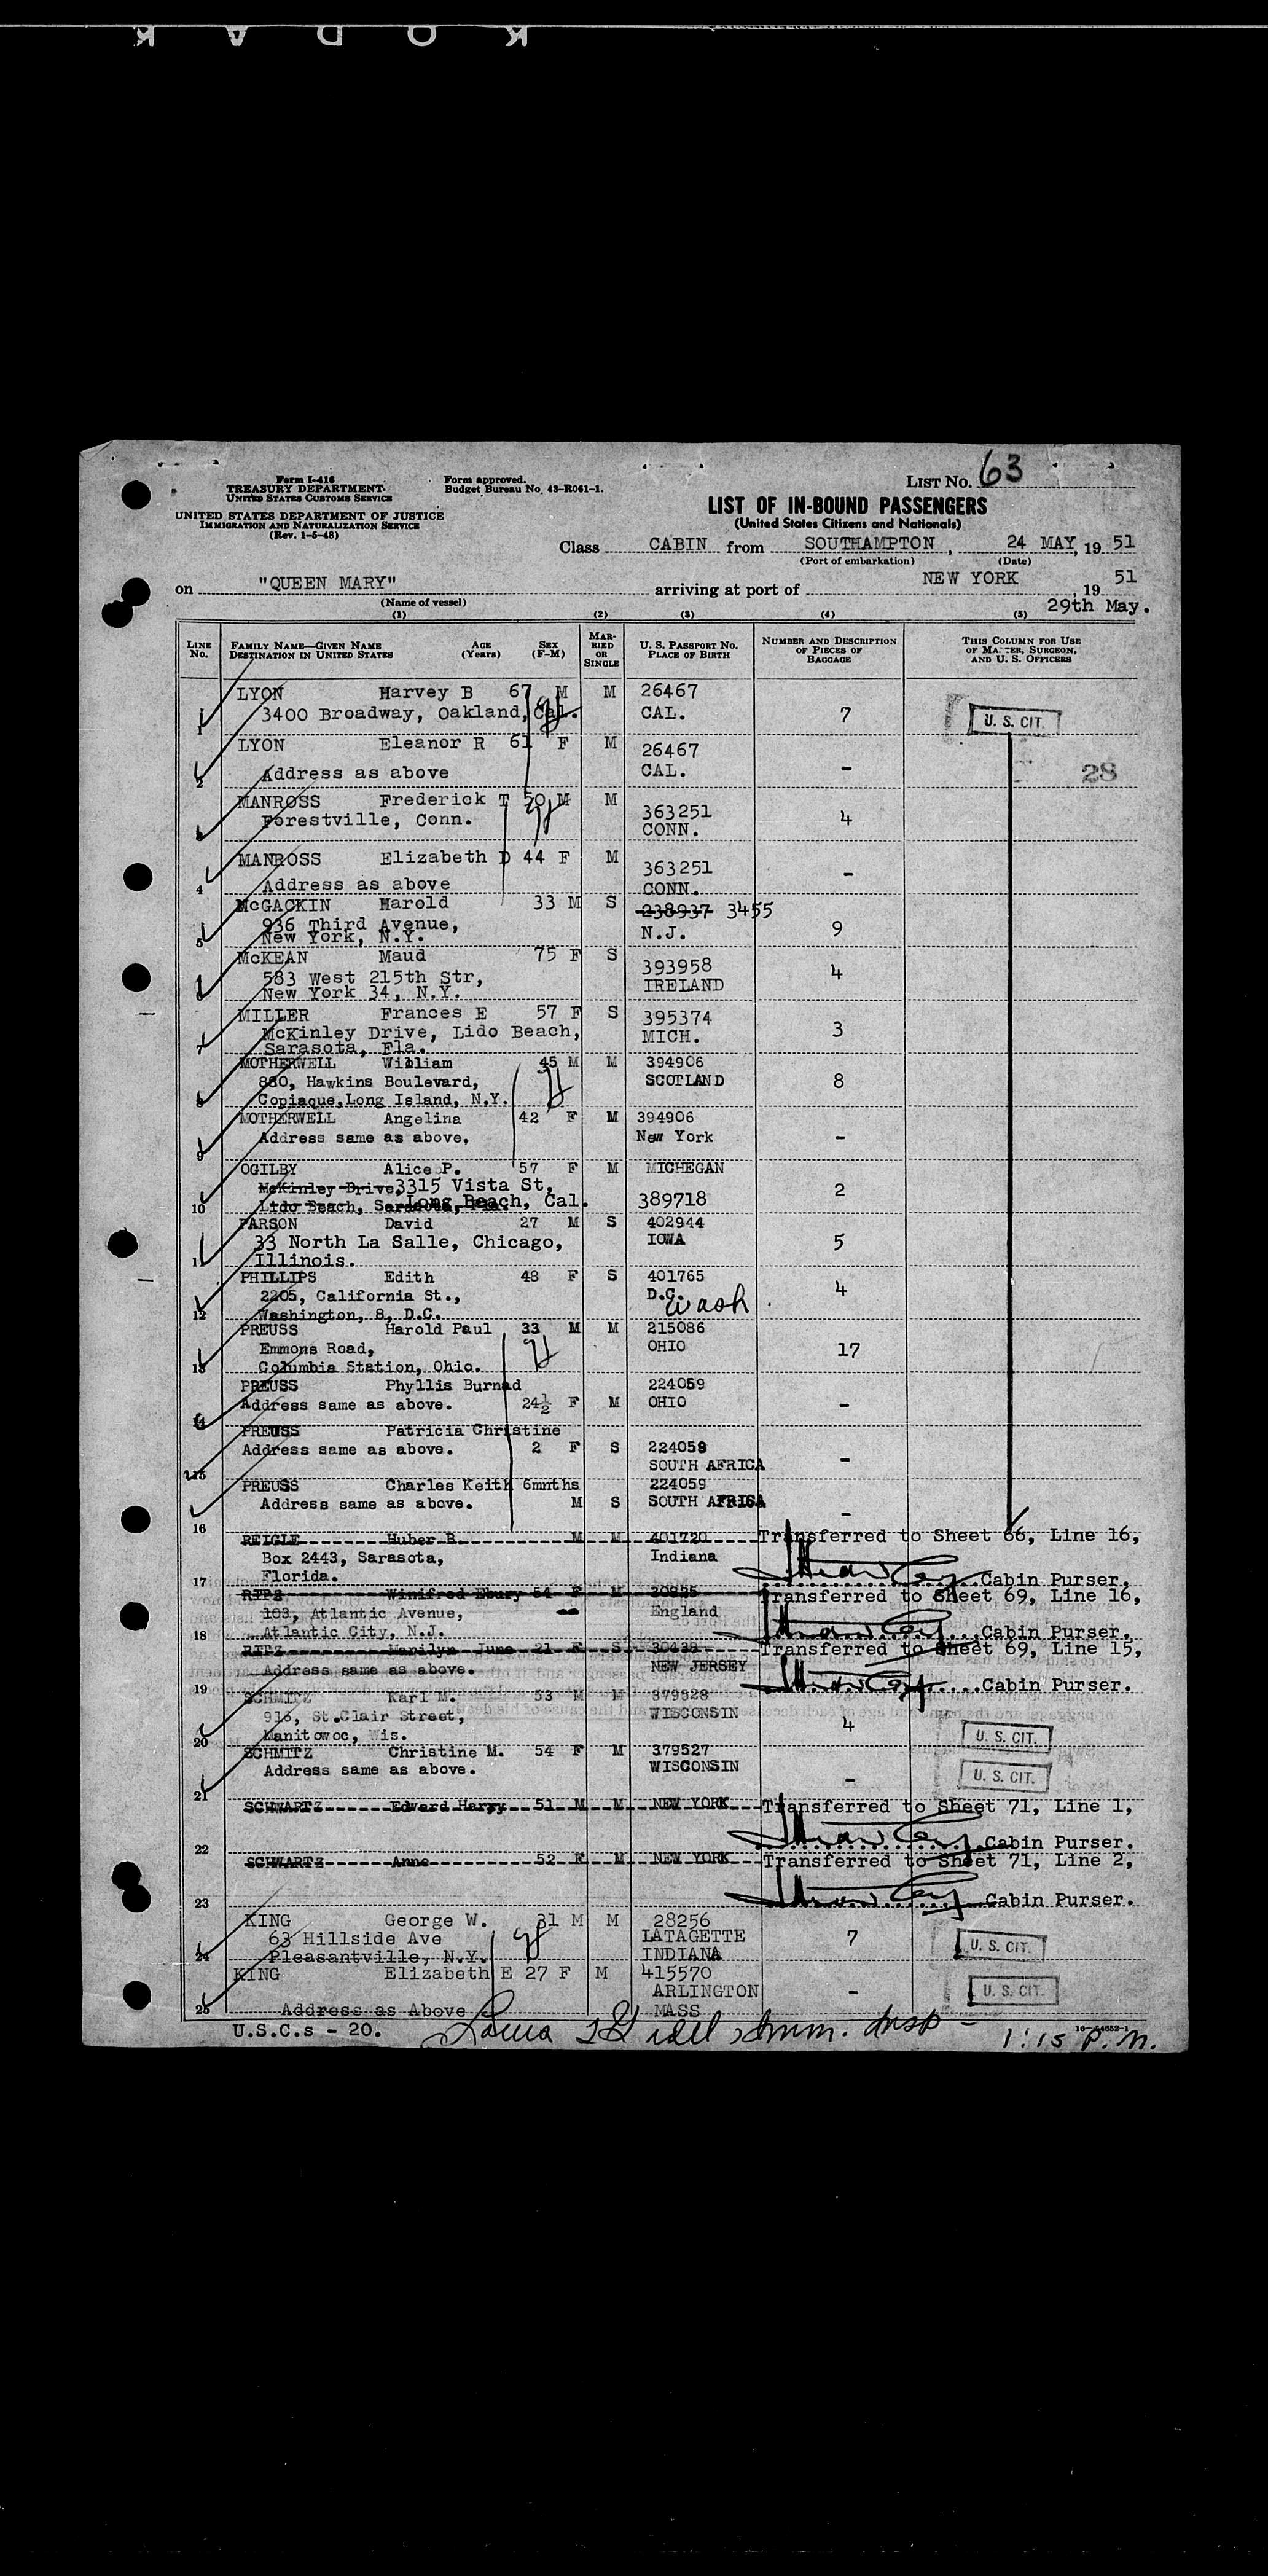 KODAK
Form I-416
TREASURY DEPARTMENT
UNITED STATES CUSTOMS SERVICE
Form approved.
Budget Bureau No. 43-R061-1.
LIST No. 63
UNITED STATES DEPARTMENT OF JUSTICE
IMMIGRATION AND NATURALIZATION SERVICE
(Rev. 1-5-48)
LIST OF IN-BOUND PASSENGERS
(United States Citizens and Nationals)
Class CABIN from SOUTHAMPTON, 24 MAY, 19 51
(Port of embarkation) (Date)
on "QUEEN MARY" arriving at port of NEW YORK, 19 51
(Name of vessel) 29th May.
(1) (2) (3) (4) (5)
LINE No. FAMILY NAME—GIVEN NAME DESTINATION IN UNITED STATES AGE (Years) SEX (F-M) MARRIED OR SINGLE U. S. PASSPORT No. PLACE OF BIRTH NUMBER AND DESCRIPTION OF PIECES OF BAGGAGE THIS COLUMN FOR USE OF MASTER, SURGEON, AND U. S. OFFICERS
LYON Harvey B 67 M M 26467
1 3400 Broadway, Oakland, Cal. CAL. 7 U. S. CIT.
LYON Eleanor R 61 F M 26467
2 Address as above CAL. - 28
MANROSS Frederick T 50 M M 363251
3 Forestville, Conn. CONN. 4
MANROSS Elizabeth D 44 F M 363251
4 Address as above CONN. -
McGACKIN Harold 33 M S 238937 3455
936 Third Avenue, N.J. 9
5 New York, N.Y.
McKEAN Maud 75 F S 393958
583 West 215th Str, IRELAND 4
6 New York 34, N.Y.
MILLER Frances E 57 F S 395374
McKinley Drive, Lido Beach, MICH. 3
7 Sarasota, Fla.
MOTHERWELL William 45 M M 394906
880, Hawkins Boulevard, SCOTLAND 8
8 Copiaque, Long Island, N.Y.
MOTHERWELL Angelina 42 F M 394906
9 Address same as above, New York -
OGILBY Alice P. 57 F M MICHEGAN
McKinley Drive, 3315 Vista St, 2
10 Lido Beach, Sarasota, Fla. Long Beach, Cal. 389718
PARSON David 27 M S 402944
33 North La Salle, Chicago, IOWA 5
11 Illinois.
PHILLIPS Edith 48 F S 401765
2205, California St., D.C. wash. 4
12 Washington, 8, D.C.
PREUSS Harold Paul 33 M M 215086
Emmons Road, OHIO 17
13 Columbia Station, Ohio.
PREUSS Phyllis Burnad 224059
14 Address same as above. 24½ F M OHIO -
PREUSS Patricia Christine
Address same as above. 2 F S 224059
15 SOUTH AFRICA -
PREUSS Charles Keith 6mnths 224059
16 Address same as above. M S SOUTH AFRICA -
REIGLE Huber B. M M 401720 Transferred to Sheet 66, Line 16,
Box 2443, Sarasota, Indiana
17 Florida. Cabin Purser.
RIPZ Winifred Ebury 54 F M Transferred to Sheet 69, Line 16,
103, Atlantic Avenue, England
18 Atlantic City, N.J. Cabin Purser.
RIPZ June 21 F S Transferred to Sheet 69, Line 15,
19 Address same as above. NEW JERSEY Cabin Purser.
SCHMITZ Karl M. 53 M M 379528
916, St.Clair Street, WISCONSIN 4
20 Manitowoc, Wis. U. S. CIT.
SCHMITZ Christine M. 54 F M 379527
21 Address same as above. WISCONSIN - U. S. CIT.
SCHWARTZ Edward Harry 51 M M NEW YORK Transferred to Sheet 71, Line 1,
22 Cabin Purser.
SCHWARTZ Anne 52 F M NEW YORK Transferred to Sheet 71, Line 2,
23 Cabin Purser.
KING George W. 31 M M 28256
63 Hillside Ave LATAGETTE 7
24 Pleasantville, N.Y. INDIANA U. S. CIT.
KING Elizabeth E 27 F M 415570
ARLINGTON - U. S. CIT.
25 Address as Above MASS
U.S.C.s - 20. Imm. Insp - 1:15 P.M.